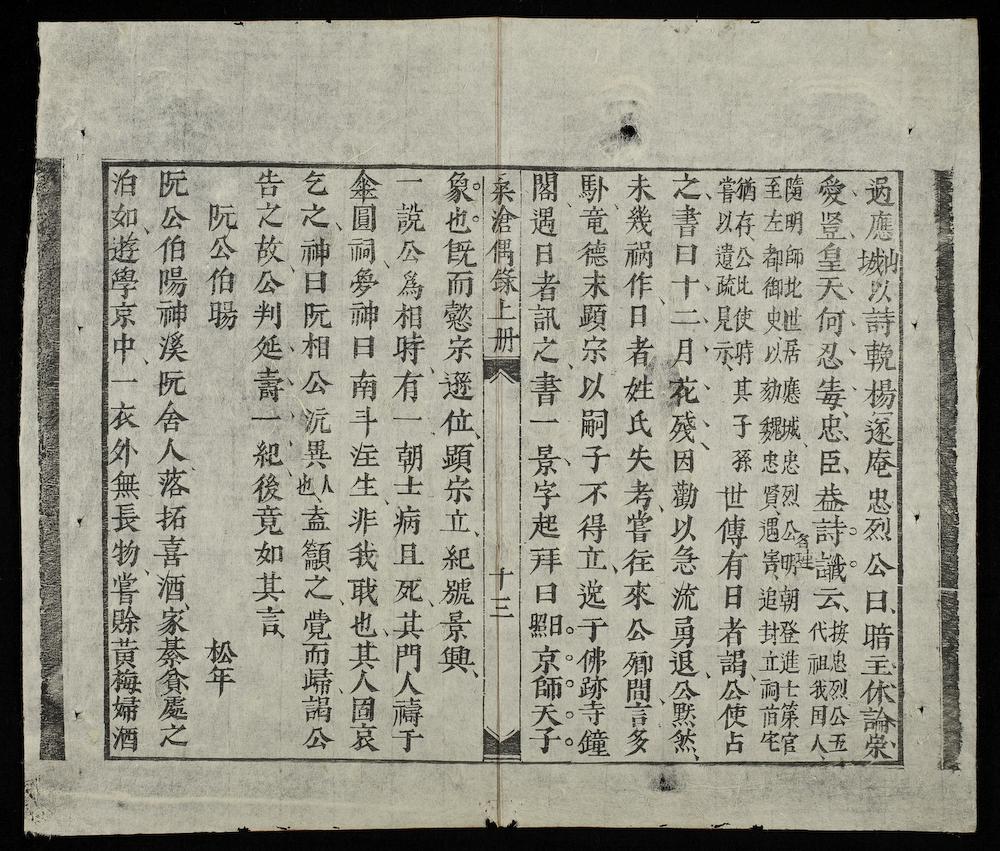 過應城以詩輓楊逐庵忠烈公曰暗主休論崇
愛豎皇天何忍毒忠臣葢詩讖云
按忠烈公五代祖我国人
隨明師北世居應城忠烈公明朝登進士第官
至左都御史以劾魏忠賢遇害追封立祠苗宅
猶存公比使時其子孫
嘗以遺疏見示
世傳有日者謁公使占
之書曰十二月花殘因勸以急流勇退公默然
未幾祸作日者姓氏失考嘗往來公卿間言多
馱竜德未顕宗以嗣子不得立逃于佛跡寺鐘
閣遇日者訊之書一景字起拜曰照京師天子
桑滄偶錄上册
十三
象也旣而懿宗遜位顕宗立紀號景興
一說公爲相時有一朝士病且死其門人禱于
傘圓祠夢神曰南斗注生非我職也其人固哀
乞之神曰阮相公沆異人也盍籲之覺而歸謁公
告之故公判延壽一紀後竟如其言
阮公伯暘
松年
阮公伯陽神溪阮舍人落拓喜酒家綦貧處之
泊如遊學京中一衣外無長物嘗賒黃梅婦酒